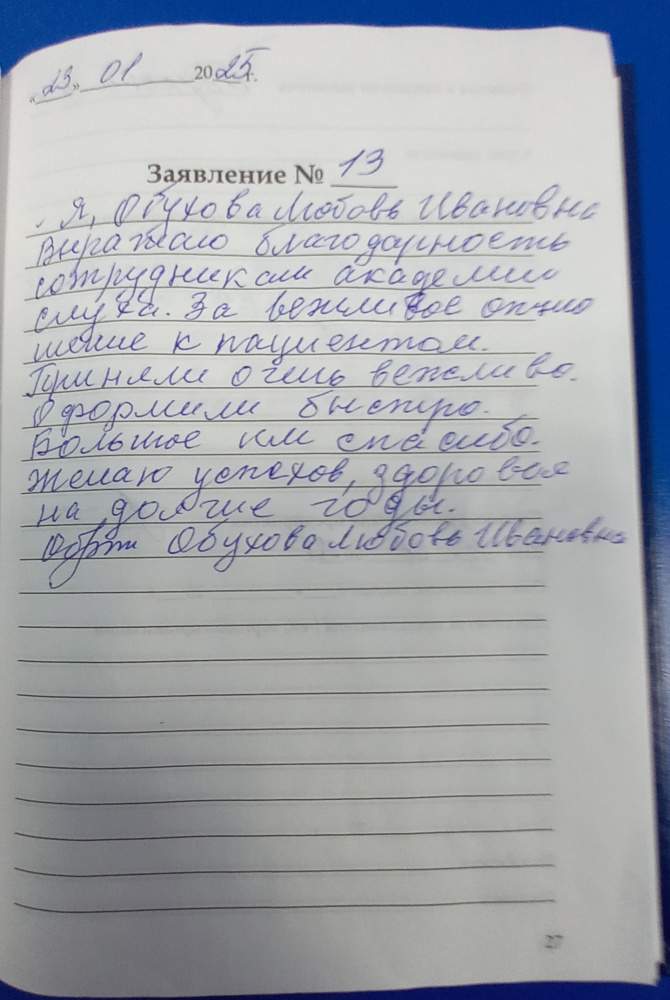 «23» 01 2025г.
Заявление № 13
Я, Обухова Любовь Ивановна
выражаю благодарность
сотрудникам академии
слуха. За вежливое отно
шение к пациентам.
Приняли очень вежливо.
Оформили быстро.
Большое им спасибо.
Желаю успехов, здоровья
на долгие годы.
Обухова Любовь Ивановна
27